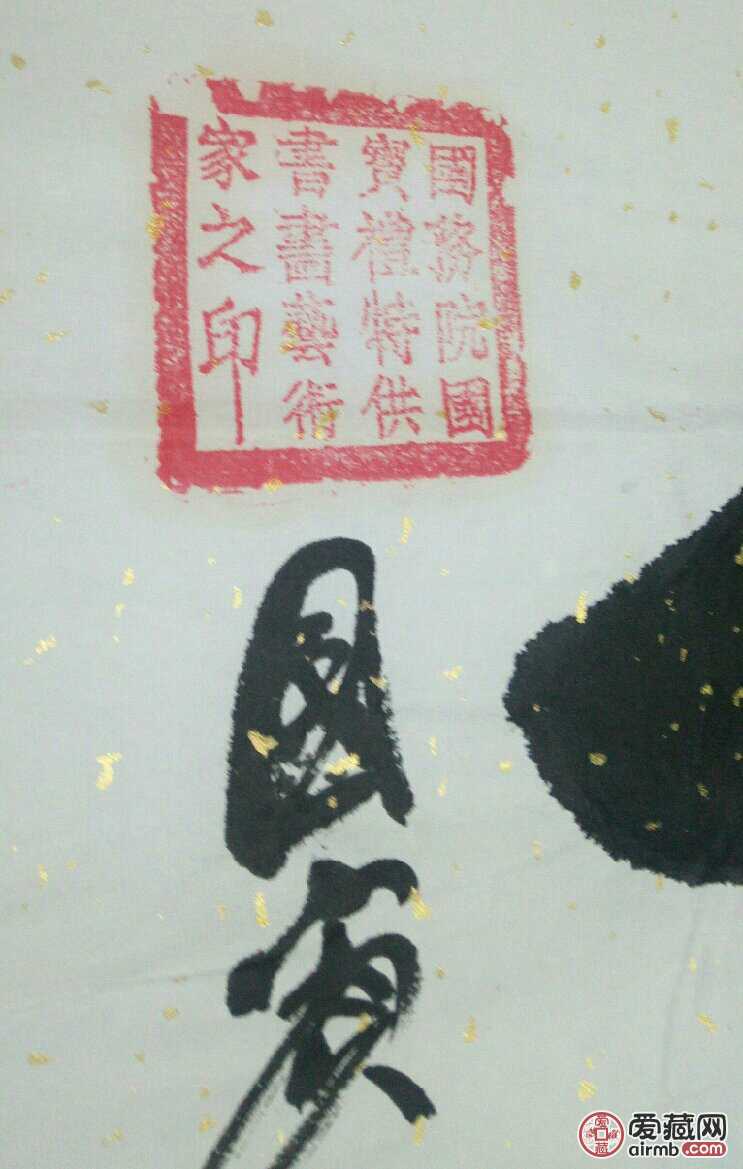 國務院國
賓禮特供
書畫藝術
家之印
國賓
爱藏网
airmb.com